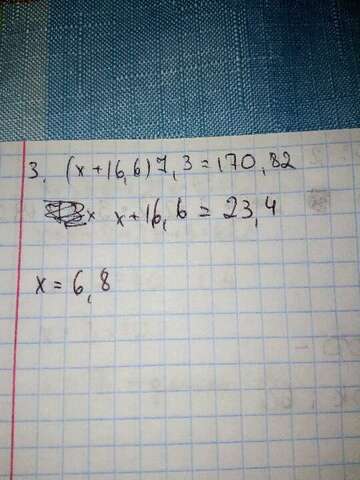 3. (x+16,6)7,3=170,82
x x+16,6=23,4
x=6,8